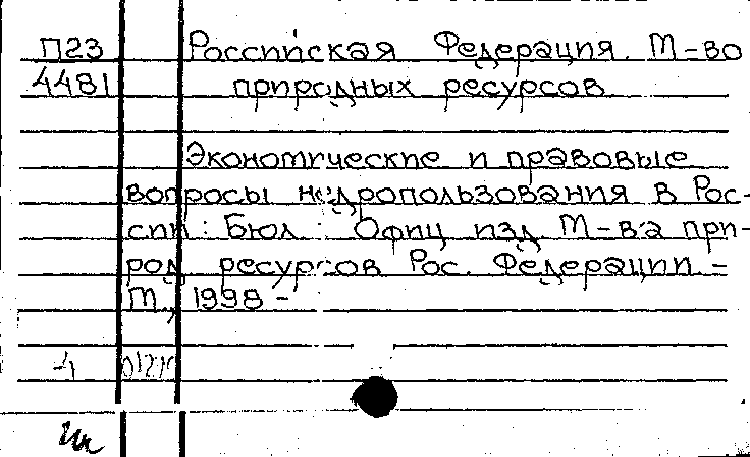 П23 Российская Федерация. М-во
4481 природных ресурсов
Экономические и правовые
вопросы недропользования в Рос-
сии : Бюл : Офиц изд. М-ва при-
род. ресурсов Рос. Федерации -
М., 1998 -